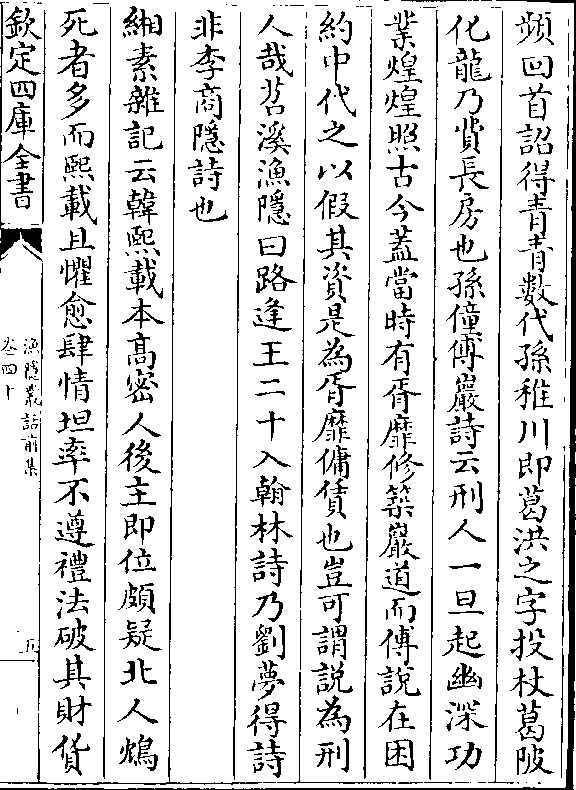 頻回首詔得青青數代孫稚川即葛洪之字投杖葛陂
化龍乃費長房也孫僅傅巖詩云刑人一旦起幽深功
業煌煌照古今蓋當時有胥靡修築巖道而傅說在困
約中代之以假其資是為胥靡傭賃也豈可謂說為刑
人哉苕溪漁隱曰路逢王二十入翰林詩乃劉夢得詩
非李商隱詩也
緗素雜記云韓熙載本髙密人後主即位頗疑北人鴆
死者多而熙載且懼愈肆情坦率不遵禮法破其財貨
欽定四庫全書
漁隱叢話前集
卷四十
五